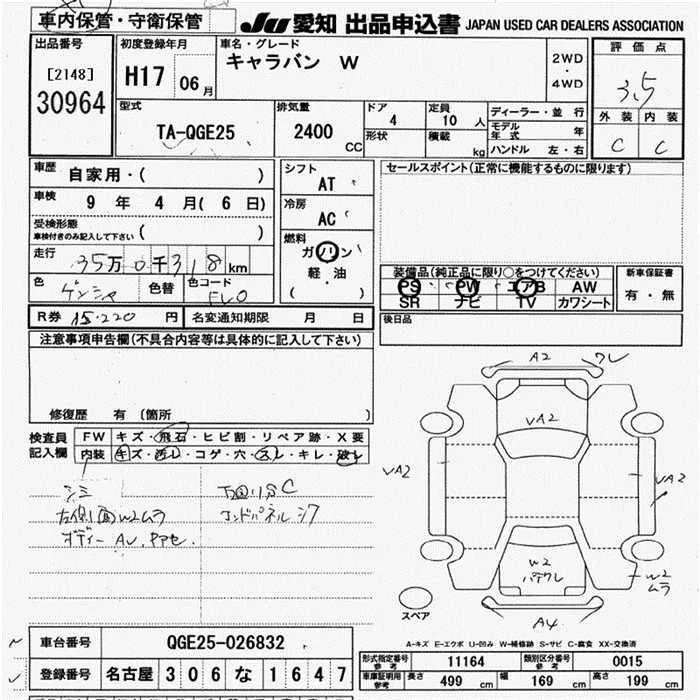 車内保管・守衛保管
JU 愛知 出品申込書 JAPAN USED CAR DEALERS ASSOCIATION
出品番号
[2148]
30964
初度登録年月
H17 06月
車名・グレード
キャラバン W
2WD
・
4WD
評価点
3.5
外装 内装
C C
型式
TA-QGE25
排気量
2400 CC
ドア
4
形状
定員
10 人
積載
kg
ディーラー・並行
モデル年式 年
ハンドル 左・右
車歴
自家用・( )
車検
9 年 4 月( 6 日)
受検形態
車検付きのみ記入して下さい ( )
走行
35万0千318km
色
ゲンシャ
色替
色コード
シフト
AT
冷房
AC
燃料
ガソリン
・
軽・油
( )
セールスポイント(正常に機能するものに限ります)
装備品(純正品に限り○をつけてください)
PS PW エアB AW
SR ナビ TV カワシート
新車保証書
有・無
後日品
R券 15.220 円
名変通知期限 月 日
注意事項申告欄(不具合内容等は具体的に記入して下さい)
修復歴 有 (箇所 )
検査員
記入欄
FW キズ・飛石・ヒビ割・リペア跡・X要
内装 キズ・汚レ・コゲ・穴・スレ・キレ・破レ
シミ
左側面W2ムラ
ボディー AU.
コンドパネル
A2
ワレ
VA2
VA2
VA2
W2
W2
ムラ
A4
スペア
A-キズ E-エクボ U-凹み W-補修跡 S-サビ C-腐食 XX-交換済
車台番号 QGE25-026832
登録番号 名古屋 306 な 1647
形式指定番号
参考
11164
類別区分番号
参考
0015
車庫証明用
参考
長さ 499 cm 幅 169 cm 高さ 199 cm